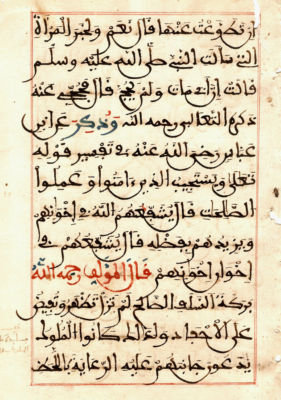 ان تطوعت عنها قال نعم ولخبر المرأة
التي سألت النبي صلى الله عليه وسلم
قالت ان ابي مات ولم يحج قال فحجي عنه
ذكره الثعالبي رحمه الله وذكر عن ابن
عباس رضي الله عنه في تفسير قوله
تعالى ويستجيب الذين امنوا وعملوا
الصلحت قال يشفعهم الله في اخوانهم
ويزيدهم من فضله قال يشفعهم في
اخوان اخوانهم قال المؤلف رحمه الله
بركة السلف الصالح لم تزل تظهر وتفيض
على الاحفاد ولذلك كانوا الملوك
يدعون جانبهم عليه الرعاية